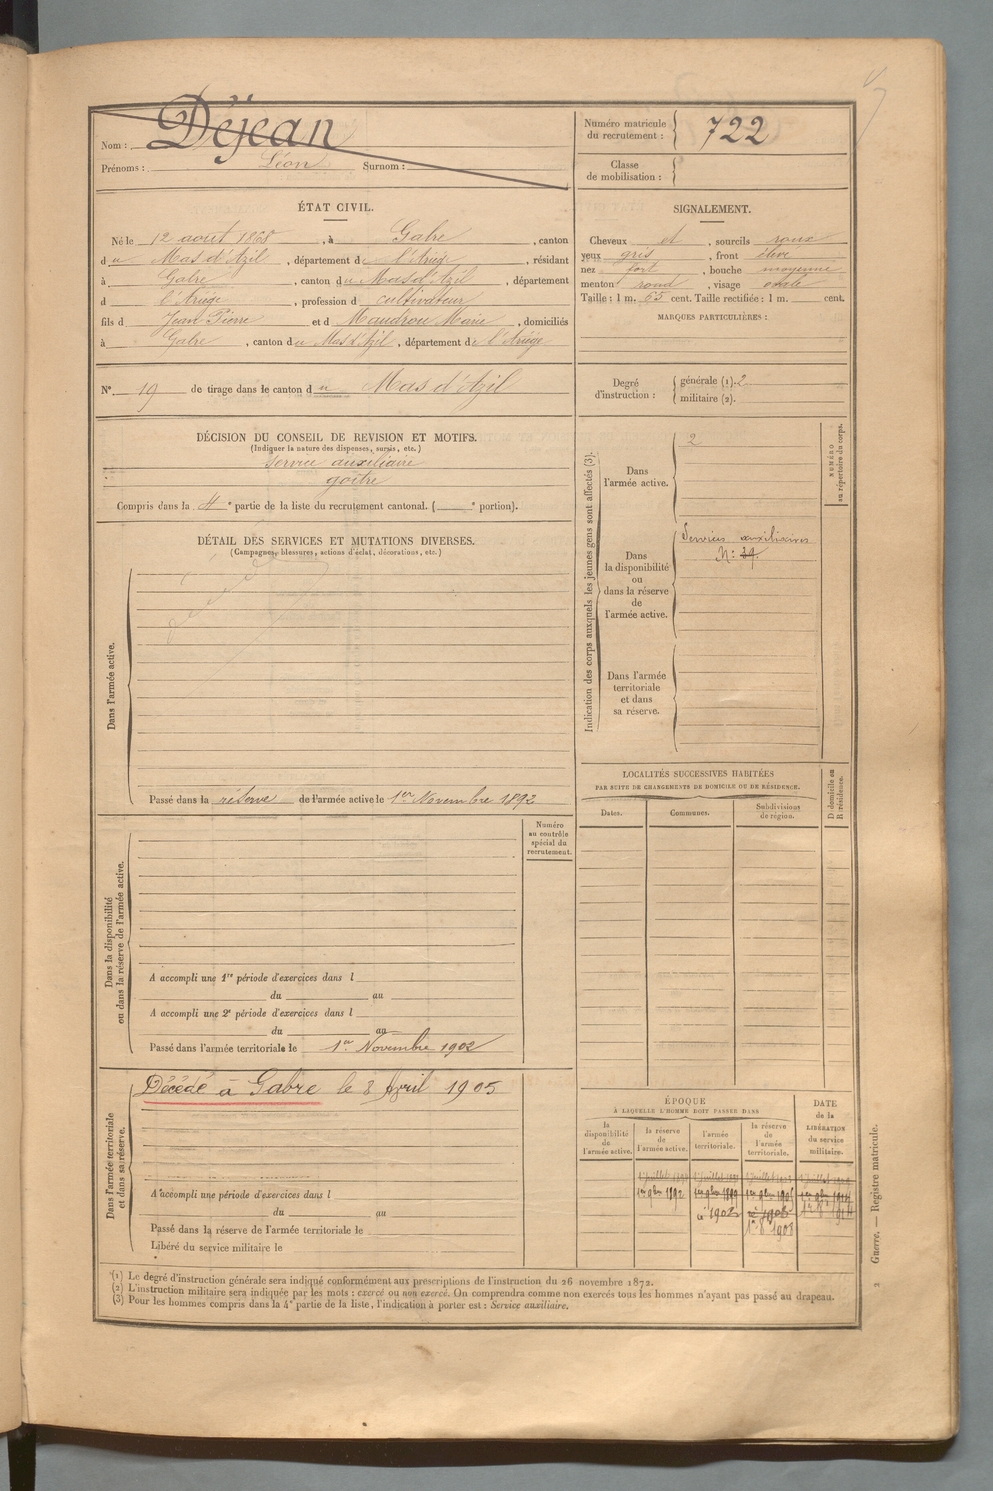 Nom : Déjean
Prénoms : Léon Surnom :
Numéro matricule
du recrutement : 722
Classe
de mobilisation :
ÉTAT CIVIL.
Né le 12 août 1868, à Gabre, canton
du Mas d'Azil, département de l'Ariège, résidant
à Gabre, canton du Mas d'Azil, département
d l'Ariège, profession d cultivateur
fils d Jean Pierre et d Maudrou Marie, domiciliés
à Gabre, canton du Mas d'Azil, département de l'Ariège
N° 19 de tirage dans le canton du Mas d'Azil
SIGNALEMENT.
Cheveux et, sourcils roux
yeux gris, front élevé
nez fort, bouche moyenne
menton rond, visage ovale
Taille : 1 m. 55 cent. Taille rectifiée : 1 m. cent.
MARQUES PARTICULIÈRES :
Degré
d'instruction :
générale (1). 2
militaire (2).
DÉCISION DU CONSEIL DE REVISION ET MOTIFS.
(Indiquer la nature des dispenses, sursis, etc.)
Service auxiliaire
goître
Compris dans la 4e partie de la liste du recrutement cantonal. ( e portion).
DÉTAIL DES SERVICES ET MUTATIONS DIVERSES.
(Campagnes, blessures, actions d'éclat, décorations, etc.)
Dans l'armée active.
Passé dans la réserve de l'armée active le 1er Novembre 1892
Indication des corps auxquels les jeunes gens sont affectés (3).
NUMÉRO
au répertoire du corps.
Dans
l'armée active.
2
Dans
la disponibilité
ou
dans la réserve
de
l'armée active.
Services auxiliaires
N°: 39.
Dans l'armée
territoriale
et dans
sa réserve.
LOCALITÉS SUCCESSIVES HABITÉES
PAR SUITE DE CHANGEMENTS DE DOMICILE OU DE RÉSIDENCE.
D domicile ou
R résidence.
Dates.
Communes.
Subdivisions
de région.
Numéro
au contrôle
spécial du
recrutement.
Dans la disponibilité
ou dans la réserve de l'armée active.
A accompli une 1re période d'exercices dans l
du au
A accompli une 2e période d'exercices dans l
du au
Passé dans l'armée territoriale le 1er Novembre 1902
Dans l'armée territoriale
et dans sa réserve.
Décédé à Gabre le 8 Avril 1905
A accompli une période d'exercices dans l
du au
Passé dans la réserve de l'armée territoriale le
Libéré du service militaire le
ÉPOQUE
À LAQUELLE L'HOMME DOIT PASSER DANS
DATE
de la
LIBÉRATION
du service
militaire.
la
disponibilité
de
l'armée active.
la réserve
de
l'armée active.
l'armée
territoriale.
la réserve
de
l'armée
territoriale.
1er 9bre 1892
1902
1908
(1) Le degré d'instruction générale sera indiqué conformément aux prescriptions de l'instruction du 26 novembre 1872.
(2) L'instruction militaire sera indiquée par les mots : exercé ou non exercé. On comprendra comme non exercés tous les hommes n'ayant pas passé au drapeau.
(3) Pour les hommes compris dans la 4e partie de la liste, l'indication à porter est : Service auxiliaire.
2 Guerre. — Registre matricule.